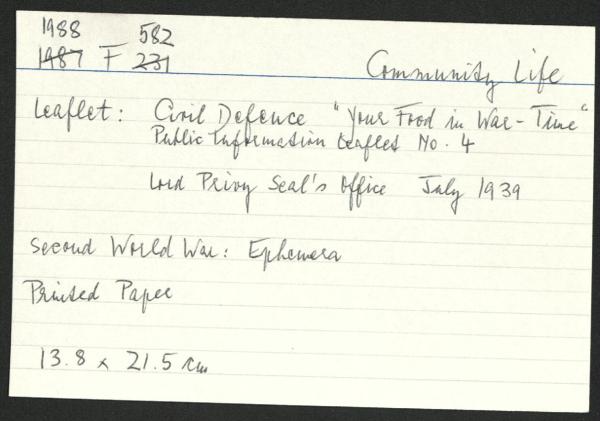 1988 582
1987 F 231
Community Life
Leaflet: Civil Defence "Your Food in War-Time"
Public Information Leaflet No. 4
Lord Privy Seal's Office July 1939
Second World War: Ephemera
Printed Paper
13.8 x 21.5 cm